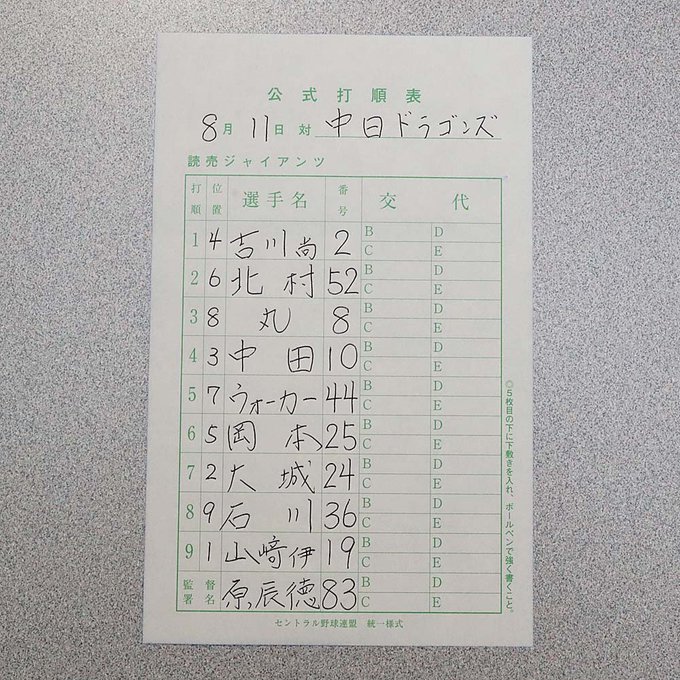 公式打順表
8月11日 対 中日ドラゴンズ
読売ジャイアンツ
打順 位置 選手名 番号 交代
1 4 吉川尚 2 B D
C E
2 6 北村 52 B D
C E
3 8 丸 8 B D
C E
4 3 中田 10 B D
C E
5 7 ウォーカー 44 B D
C E
6 5 岡本 25 B D
C E
7 2 大城 24 B D
C E
8 9 石川 36 B D
C E
9 1 山﨑伊 19 B D
C E
監督署名 原辰徳 83 B D
C E
セントラル野球連盟 統一様式
◎5枚目の下に下敷きを入れ、ボールペンで強く書くこと。